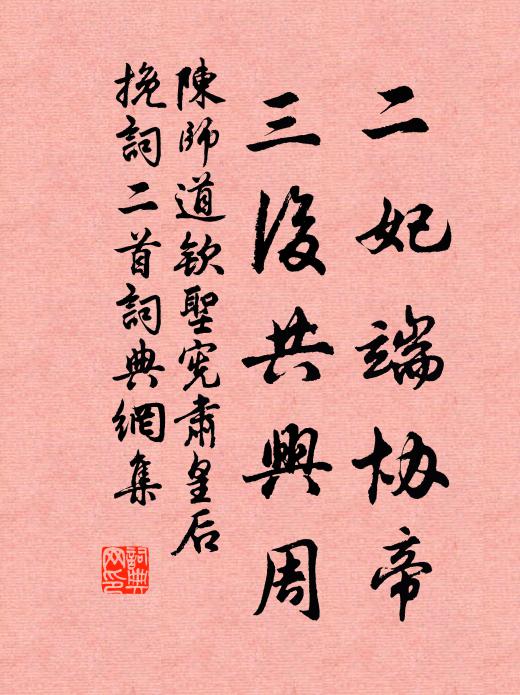 二妃端协帝
三後共興周
陳師道欽聖憲肅皇后
挽詞二首詞典網集
詞典網印